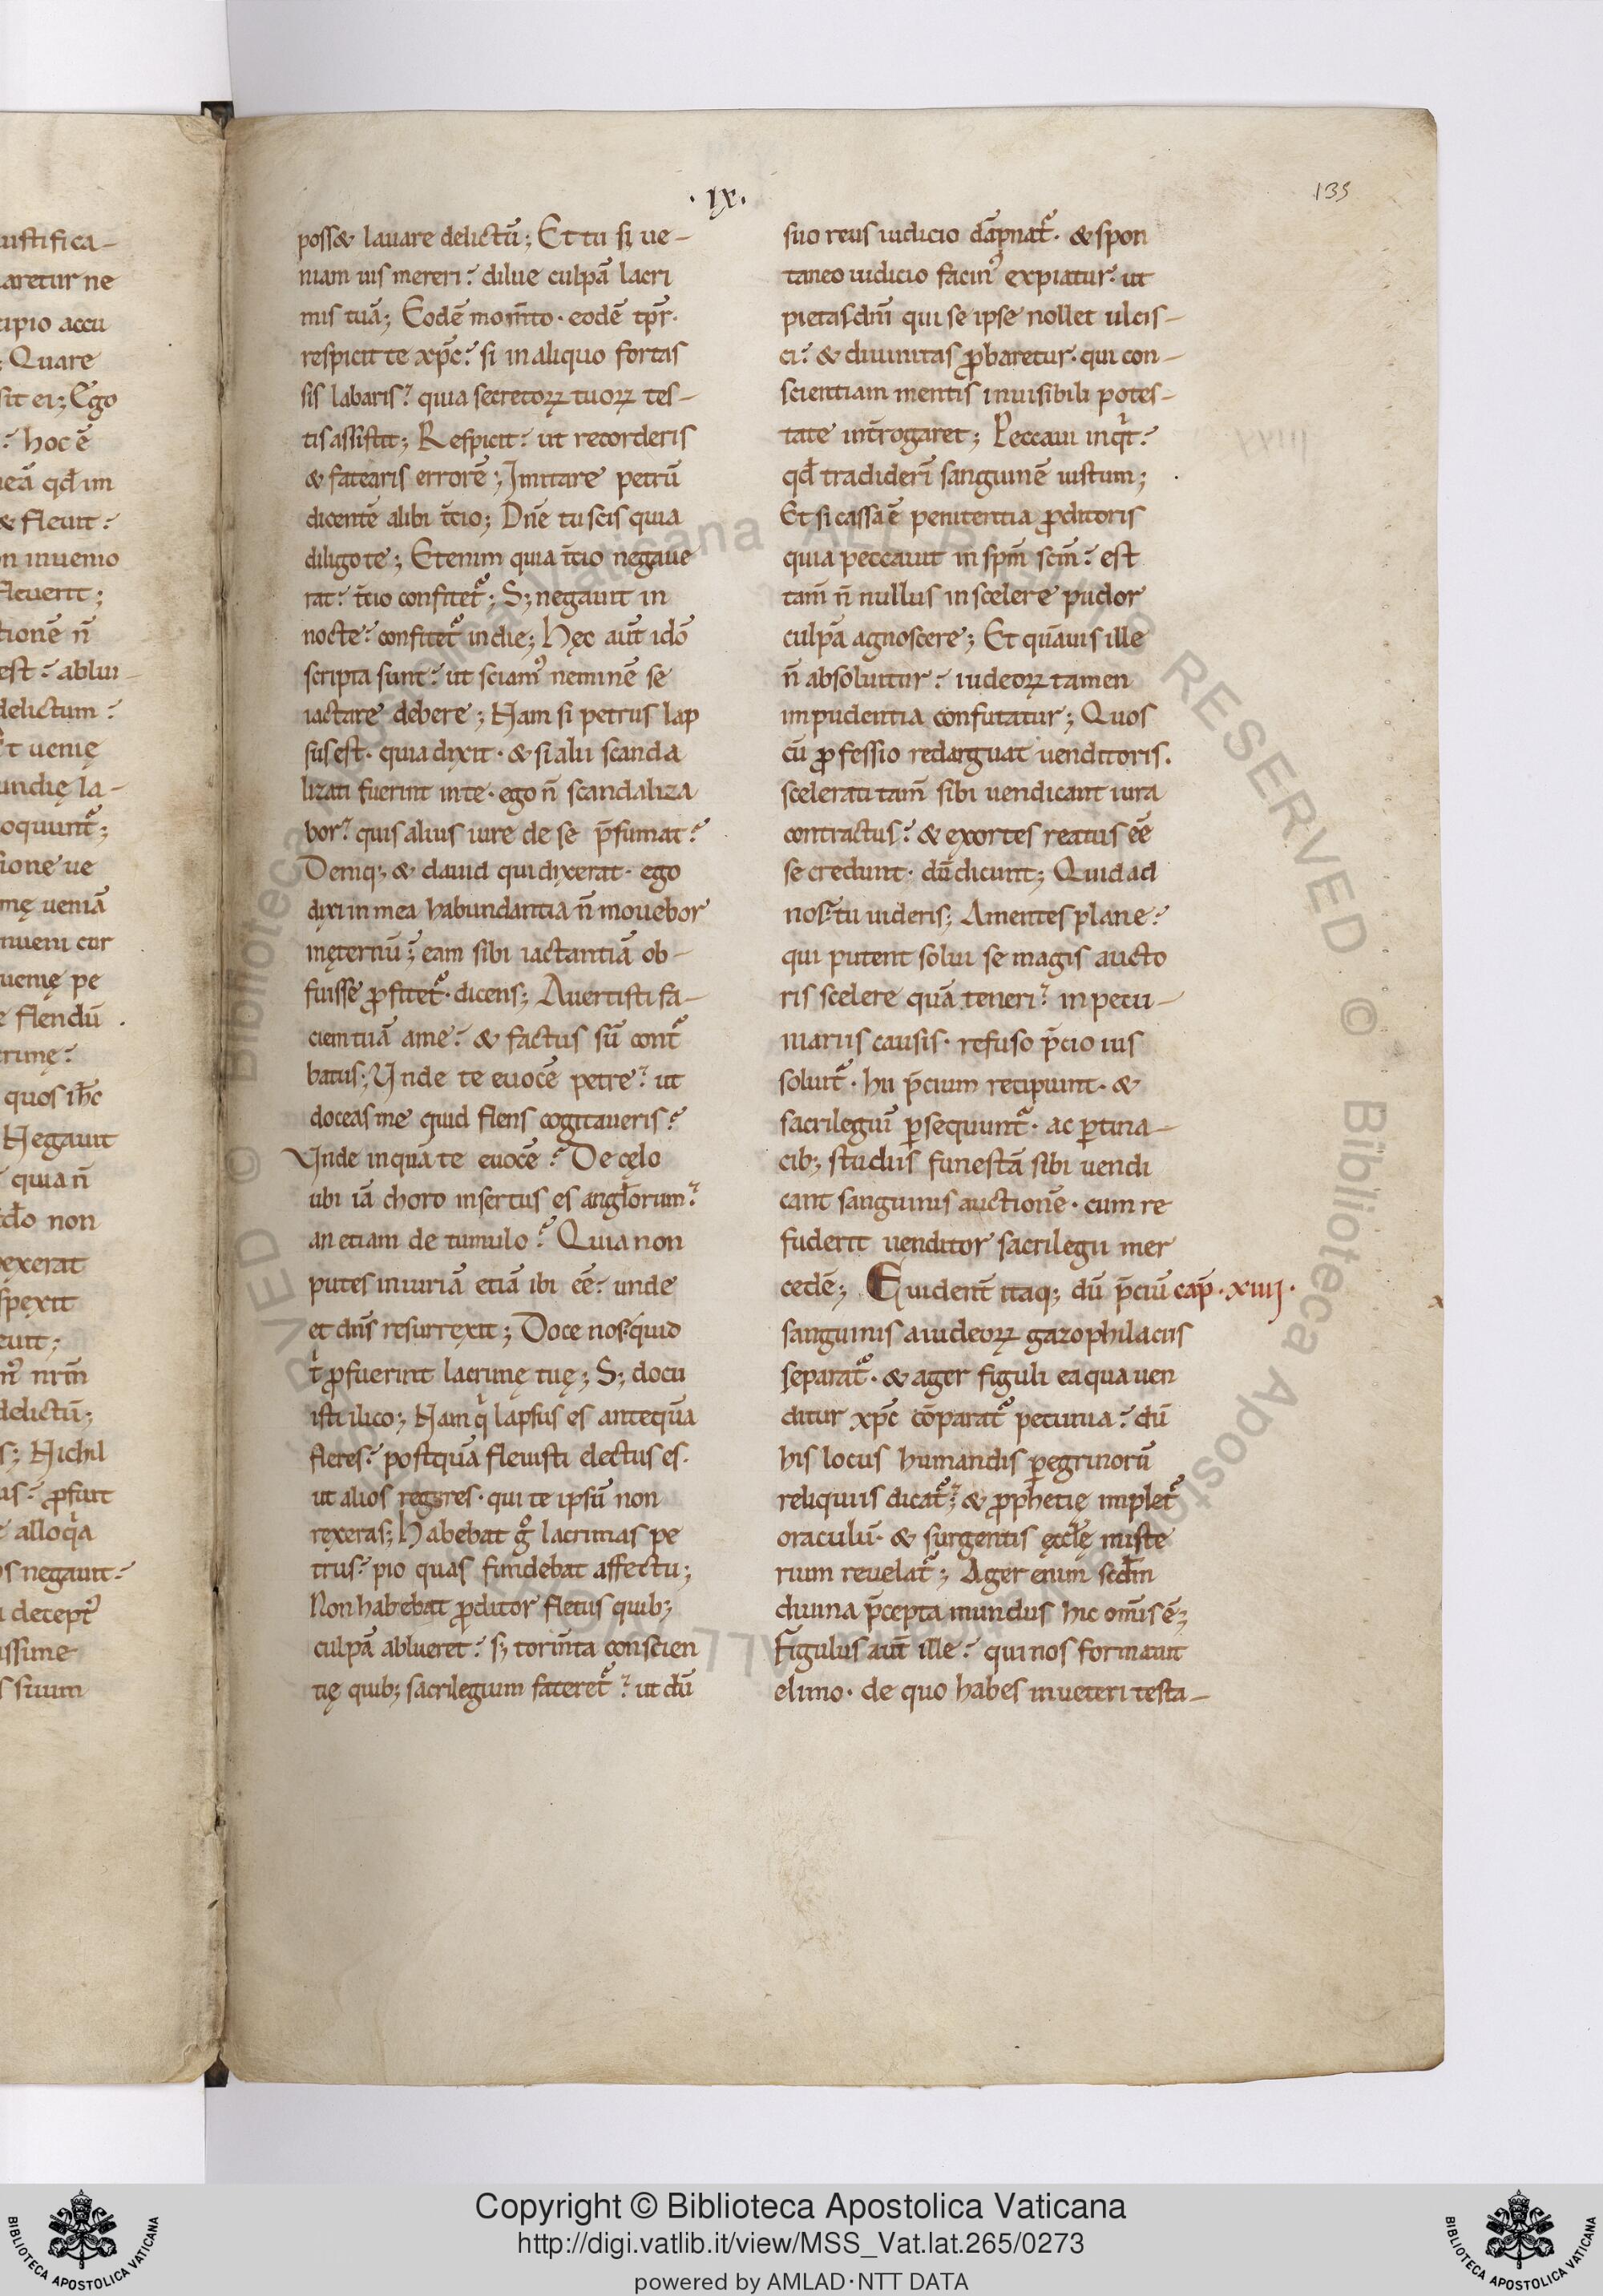 ·ıx·
135
poss& lauare delictū; Et tu si ue-
niam uis mereri? dilue culpā lacri
mis tuā; Eodē mom̄to· eodē tp̄r·
respicit te xp̄c? si in aliquo fortas
sis labaris? quia secretoꝝ tuoꝝ tes-
tis assistit; Respicit? ut recorderis
& fatearis errorē; Imitare petrū
dicentē alibi t̄cio; Dn̄e tu scis quia
diligo te; Etenim quia t̄cio negaue
rat? t̄cio confitet᷑; S; negauit in
nocte? confitet᷑ in die; Hęc aut̄ idō
scripta sunt? ut sciamꝰ neminē se
iactare debere; Nam si petrus lap
sus est· quia dixit· & si alii scanda
lizati fuerint in te· ego n̄ scandaliza
bor? quis alius iure de se p̄sumat?
Deniq; & dauid qui dixerat· ego
dixi in mea habundantia n̄ mouebor
inęternū; eam sibi iactantiā ob-
fuisse ꝓfitet᷑· dicens; Auertisti fa-
ciem tuā a me? & factus sū cont᷑
batus; Unde te euocē petre? ut
doceas me quid flens cogitaueris?
Unde inquā te euocē? De cęlo
ubi iā choro insertus es angl̄orum?
an etiam de tumulo? Quia non
putes iniuriā etiā ibi ēē? unde
et dn̄s resurrexit; Doce nos? quid
t̉ ꝓfuerint lacrimę tuę; S; docu
isti ilico; Nam q̉ lapsus es antequā
fleres? postquā fleuisti electus es·
ut alios regeres· qui te ipsū non
rexeras; Habebat g̊ lacrimas pe
trus? pio quas fundebat affectu;
Non habebat ꝓditor fletus quib;
culpā ablueret? s; torm̄ta conscien
tię quib; sacrilegium fateret᷑? ut dū
suo reus iudicio dāpnat᷑· & spon
taneo iudicio facinꝰ expiatur? ut
pietas dn̄i qui se ipse nollet ulcis-
ci? & diuinitas ꝓbaretur· qui con-
scientiam mentis inuisibili potes-
tate int̄rogaret; Peccaui inq̉t?
qd̄ tradiderī sanguinē iustum;
Et si cassa ē penitentia ꝓditoris
quia peccauit in sp̄m sc̄m? est
tam̄ n̄ nullus in scelere pudor
culpā agnoscere; Et quāuis ille
n̄ absoluitur? iudeoꝝ tamen
impudentia confutatur; Quos
cū ꝓfessio redarguat uenditoris.
scelerati tam̄ sibi uendicant iura
contractus? & exortes reatus ēē
se credunt· dū dicunt; Quid ad
nos? tu uideris; Amentes plane?
qui putent solui se magis aucto
ris scelere quā teneri? in pecu-
niariis causis· refuso p̄cio ius
soluit᷑· hii p̄cium recipiunt· &
sacrilegiū ꝑsequunt᷑· ac ꝑtina-
cib; studiis funestā sibi uendi
cant sanguinis auctionē· cum re
fuderit uenditor sacrilegii mer
cedē; Euident̄ itaq; dū p̄ciū cap̄·xiiij·
sanguinis a iudeoꝝ gazophilaciis
separat᷑· & ager figuli ea qua uen
ditur xp̄c cōparat᷑ pecunia? dū
his locus humandis peregrinorū
reliquiis dicat᷑? & ꝓphetię implet᷑
oraculū· & surgentis ęccl̄ę miste
rium reuelat᷑; Ager enim scd̄m
diuina p̄cepta mundus hic om̄is ē;
Figulus aut̄ ille? qui nos formauit
e limo· de quo habes in ueteri testa-
Copyright © Biblioteca Apostolica Vaticana
http://digi.vatlib.it/view/MSS_Vat.lat.265/0273
powered by AMLAD·NTT DATA